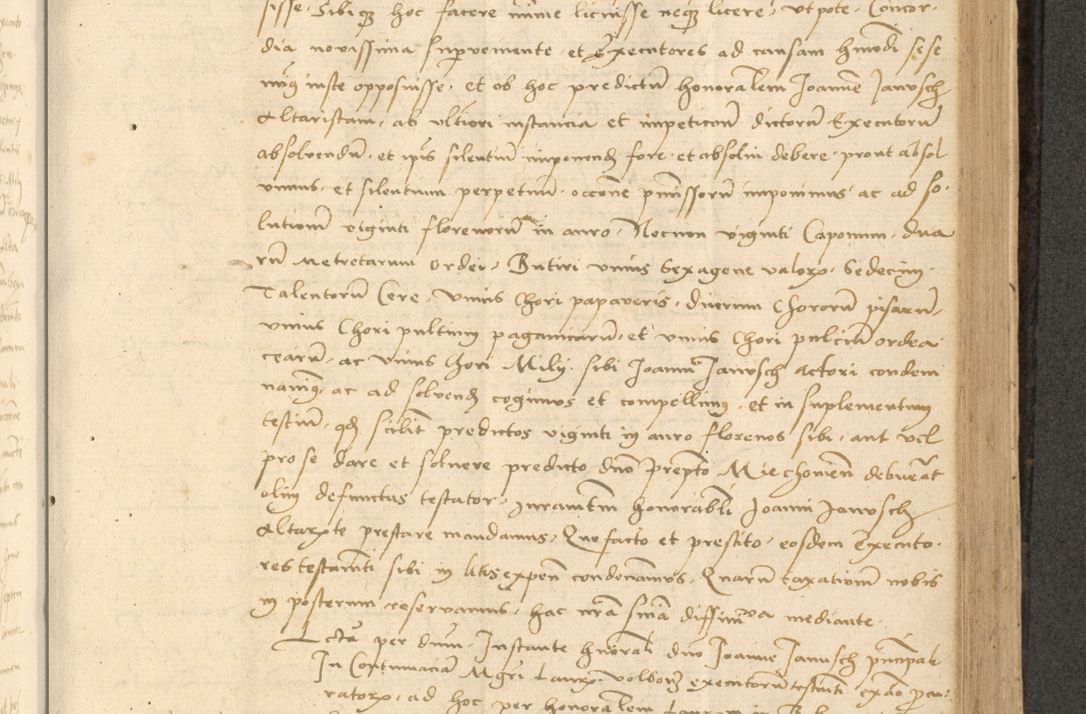 sisse, Sibiq3 hoc facere mīme licuisse neq3 licere, Vt pote, Concor-
dia novissima supveniente et Executores ad causam hmōdi sese
iniuste opposuisse, et ob hoc predictū honorālem Joannē Janusch
Altaristam, ab vltiori instancia et impeticōnē dictorū Executorū
absolvendū, et ipīs silentiū imponend fore, et absolui debere, prout absol
vimus, et silentium perpetuū, occōne pmissorū imponimus ac ad so-
lutionē viginti florenorū in auro, Necnon viginti Caponum, dua
rū metretarum ordei, Butiri vnius Sexagene valoꝝ, Sedecim
Talentorū Cere, Vnius Chori papaveris, duerum Chororū pisarū,
vnius Chori pultium paganicarū, et vnius Chori pulciū ordea
cearū, ac vnius Chori Milij, sibi Joanni Janusch Actori condem
namus, ac ad solvend cogimus et compellimus, Et in suplementum
testiū, qd scilit predictos viginti in auro florenos sibi, aut vel
pro se dare et solvere predicto dno prepto Miechovien debuerat
olim defunctus testator, Juramtm honorabli Joanni Janusch
Altarxte prestare mandamus, Quo facto et prestito, eosdem Executo-
res testamti sibi in litis expen condemnamus, Quarū taxationē nobis
in posterum reservamus, hac nrā snīa diffinitiva mediante.
Lcta per dnm, Instante hnorali dno Joanne Janusch principali
In Contumaciā Mgri Laurx executorū testamti
ratorx, ad hoc per honoralem